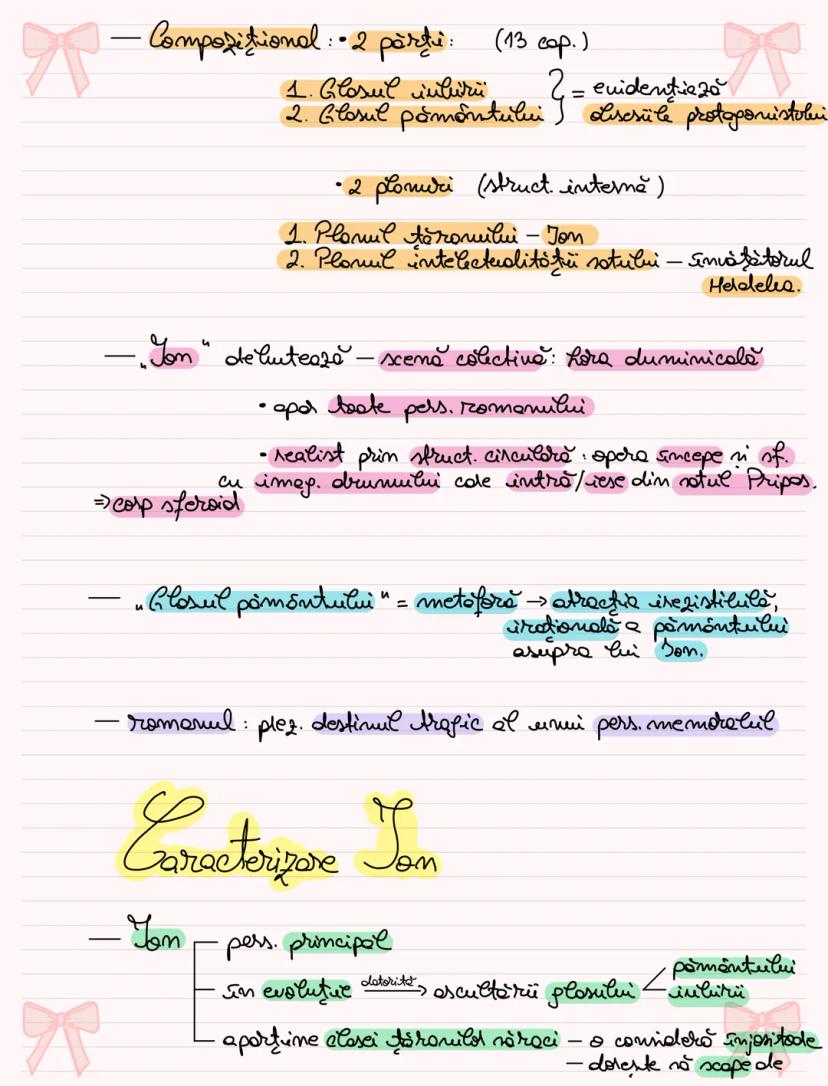 — Compozițional : • 2 părți : (13 cap.)
1. Glasul iubirii } = evidențiază
2. Glasul pământului } obsesiile protagonistului
• 2 planuri (struct. internă)
1. Planul țăranului – Ion
2. Planul intelectualității satului – învățătorul
Herdelea.
— „Ion" debutează – scenă colectivă : hora duminicală
• apar toate pers. romanului
• realist prin struct. circulară : opera începe și sf.
cu imag. drumului care intră/iese din satul Pripas.
⇒ corp sferoid
— „Glasul pământului" = metaforă → atracția irezistibilă,
irațională a pământului
asupra lui Ion.
— romanul : prez. destinul tragic al unui pers. memorabil
Caracterizare Ion
— Ion
pers. principal
în evoluție datorită → ascultării glasului < pământului
iubirii
aparține clasei țăranilor săraci – o consideră înjositoare
– dorește să scape de